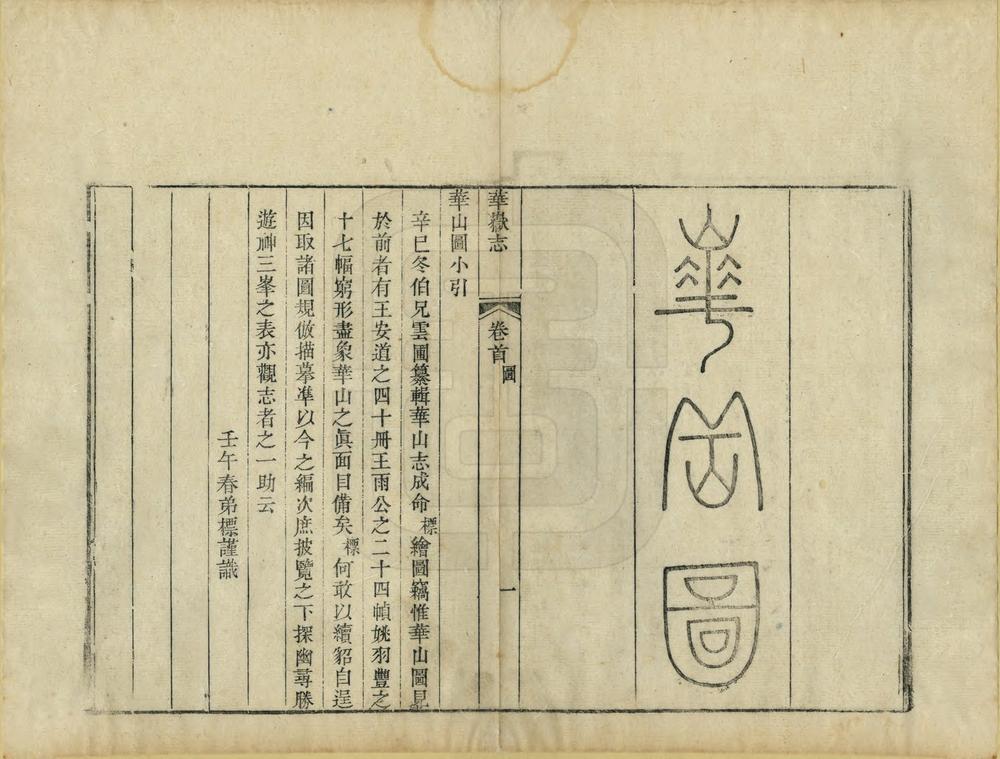 華岳圖
華嶽志 卷首 圖 一
華山圖小引
辛巳冬伯兄雲圃纂輯華山志成命標繪圖竊惟華山圖見
於前者有王安道之四十冊王雨公之二十四幀姚羽豐之
十七幅窮形盡象華山之眞面目備矣標何敢以續貂自逞
因取諸圖規倣描摹凖以今之編次庶披覽之下探幽尋勝
遊神三峯之表亦觀志者之一助云
壬午春弟標謹識